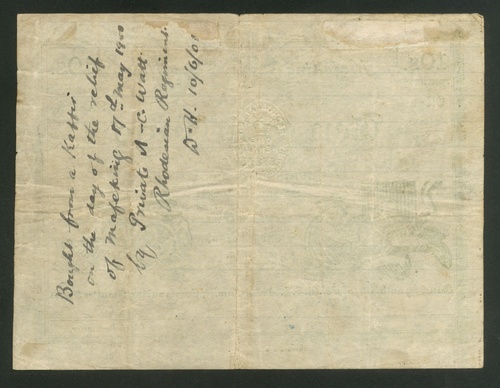 Bought from a Kaffir
on the day of the relief
of Mafeking 17th May 1900
by Private A-C. Watt
Rhodesian Regiment.
10/6/01